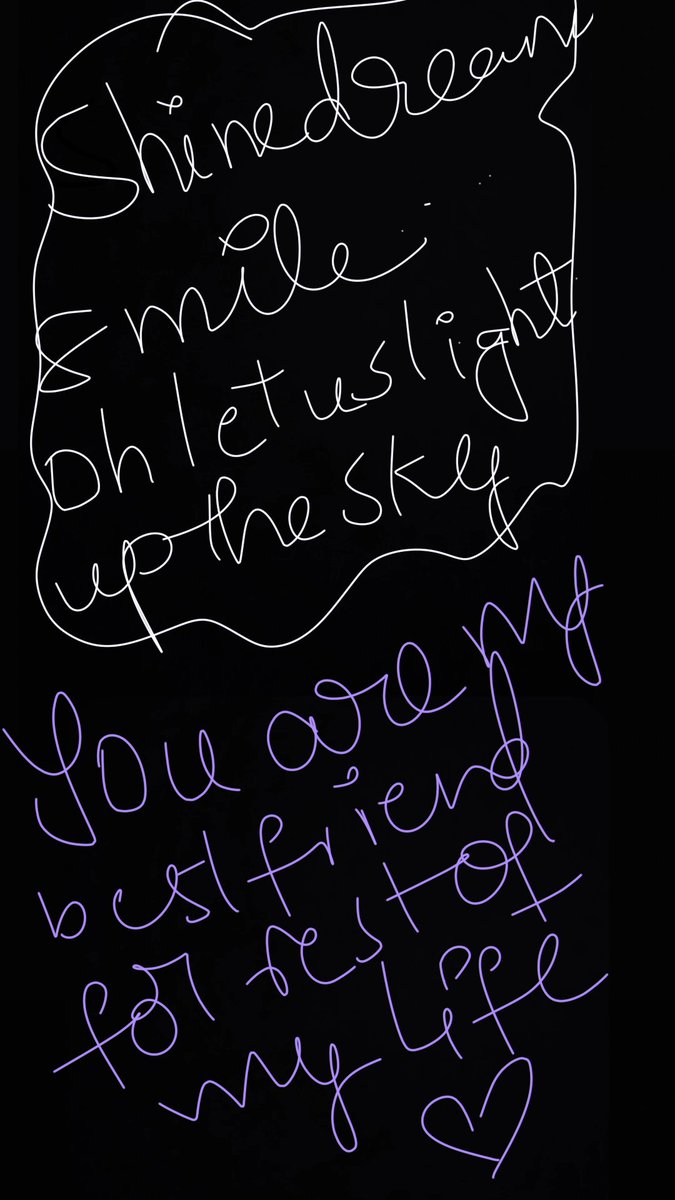 Shine dream
Smile
Oh let us light
up the sky
You are my
best friend
for rest of
my life